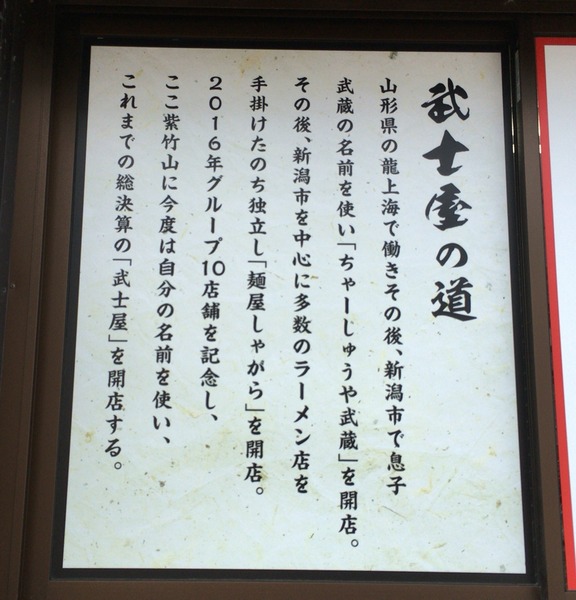 武士屋の道
山形県の龍上海で働きその後、新潟市で息子
武蔵の名前を使い「ちゃーしゅうや武蔵」を開店。
その後、新潟市を中心に多数のラーメン店を
手掛けたのち独立し「麺屋しゃがら」を開店。
２０１６年グループ１０店舗を記念し、
ここ紫竹山に今度は自分の名前を使い、
これまでの総決算の「武士屋」を開店する。